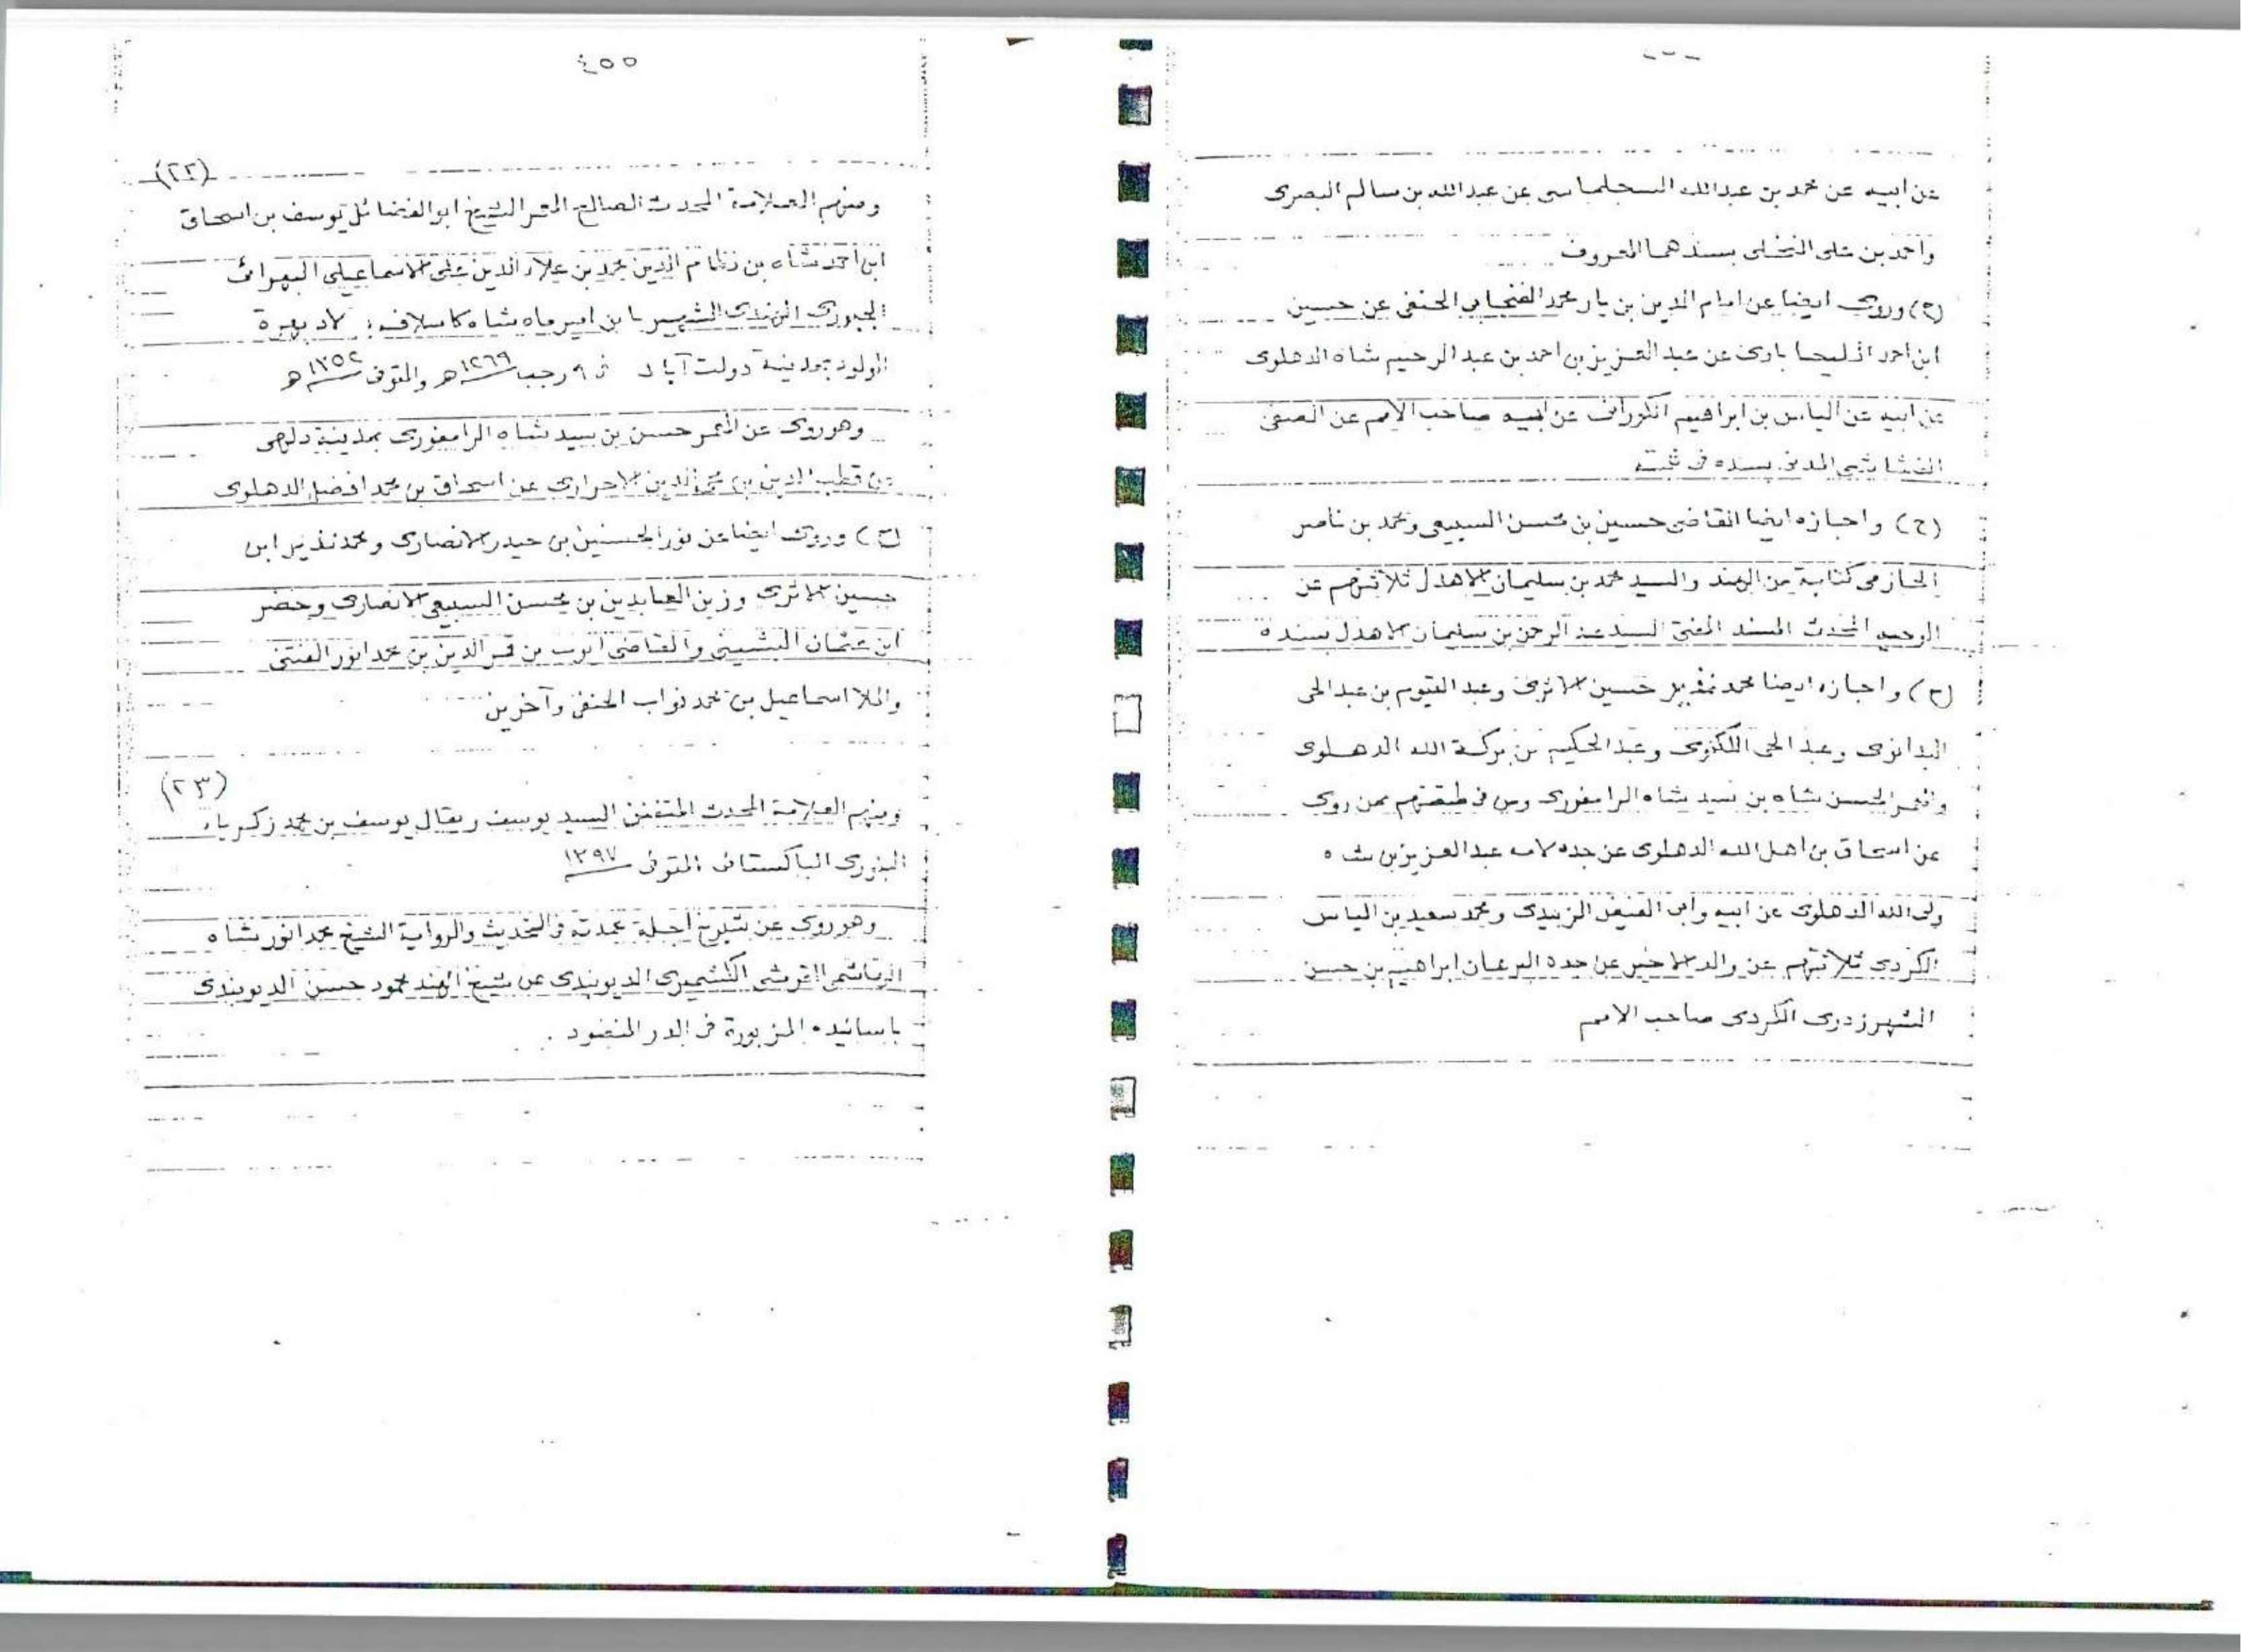 عن ابيه عن محمد بن عبدالله السجلماسي عن عبدالله بن سالم البصرى
واحمد بن على النخلى بسندهما المعروف
(ح) وروى ايضا عن امام الدين بن يار محمد الفنجابى الحنفى عن حسين
ابن احمد المليحابادى عن عبد العزيز بن احمد بن عبد الرحيم شاه الدهلوى
عن ابيه عن الياس بن ابراهيم الكورانى عن ابيه صاحب الامم عن الصفى
القشاشى المدنى بسنده فى ثبته
(ح) واجازه ايضا القاضى حسين بن محسن السبيعى ومحمد بن ناصر
الحازمى كتابة من الهند والسيد محمد بن سليمان الاهدل ثلاثتهم عن
الوجيه المحدث المسند المفتى السيد عبد الرحمن بن سليمان الاهدل بسنده
(ح) واجازه ايضا محمد نذير حسين الاثرى وعبد القيوم بن عبدالحى
البدانوى وعبد الحى اللكنوى وعبد الحكيم بن بركة الله الدهلوى
والمعمر الحسن شاه بن سيد شاه الرامفورى ومن فى طبقتهم ممن روى
عن اسحاق بن اهل الله الدهلوى عن جده لامه عبد العزيز بن شاه
ولى الله الدهلوى عن ابيه وابى الفيض الزبيدى ومحمد سعيد بن الياس
الكردى ثلاثتهم عن والد الاخير عن جده البرهان ابراهيم بن حسن
الشهرزورى الكردى صاحب الامم
٤٥٥
(٢٢)
ومنهم العلامة المحدث الصالح المعمر الشيخ ابو الفضائل يوسف بن اسحاق
ابن احمد شاه بن نظام الدين محمد بن علاء الدين على الاسماعيلى البهرائى
الهندى الشهير بابن امير ماه شاه كاسلافه
المولود بمدينة دولت آباد فى ٩ رجب ١٢٦٩ هـ والمتوفى ١٣٥٢ هـ
وهو روى عن المعمر حسن بن سيد شاه الرامفورى بمدينة دلهى
عن قطب الدين بن محى الدين الاحرارى عن اسحاق بن محمد افضل الدهلوى
(ح) وروى ايضا عن نور الحسنين بن حيدر الانصارى ومحمد نذير ابن
حسين الاثرى وزين العابدين بن محسن السبيعى الانصارى وخضر
ابن عثمان والقاضى ايوب بن قمر الدين بن محمد انور الفتنى
والملا اسماعيل بن محمد نواب الحنفى وآخرين
(٢٣)
ومنهم العلامة المحدث المتفنن السيد يوسف ويقال يوسف بن محمد زكرياء
البنورى الباكستانى المتوفى ١٣٩٧
وهو روى عن شيوخ أجلة عمدته فى التحديث والرواية الشيخ محمد انور شاه
القرشى الكشميرى الديوبندى عن شيخ الهند محمود حسن الديوبندى
باسانيده المزبورة فى الدر المنضود .